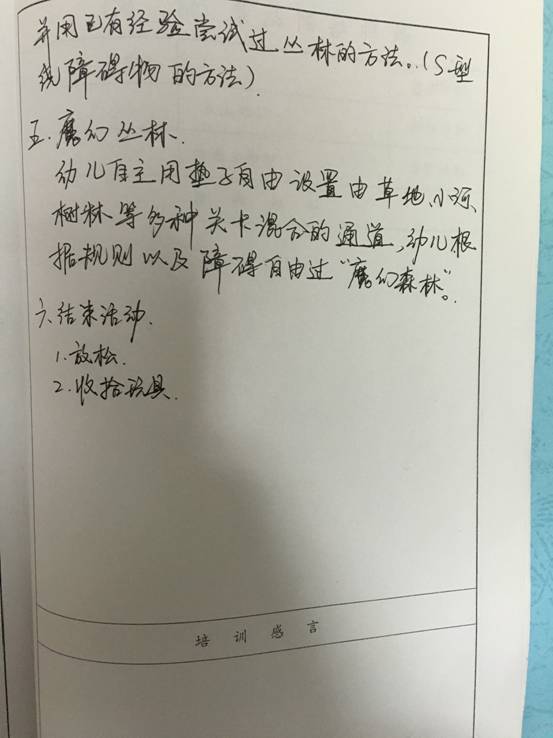 并用已有经验尝试过丛林的方法。(S型
绕障碍物的方法)
五.魔幻丛林.
幼儿自主用垫子自由设置由草地、小河、
树林等多种关卡混合的通道,幼儿根
据规则以及障碍自由过“魔幻森林”。
六.结束活动.
1.放松.
2.收拾玩具.
培训感言